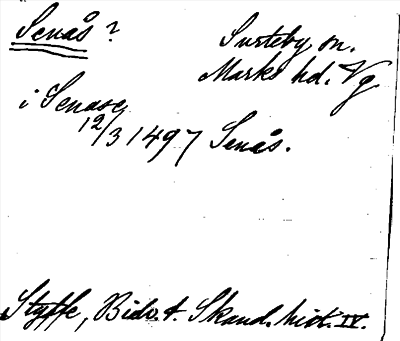 Senås?
Surteby sn.
Marks hd. Vg
i Senase
12/3 1497 Senås.
Styffe, Bidr. t. Skand. hist. IV.